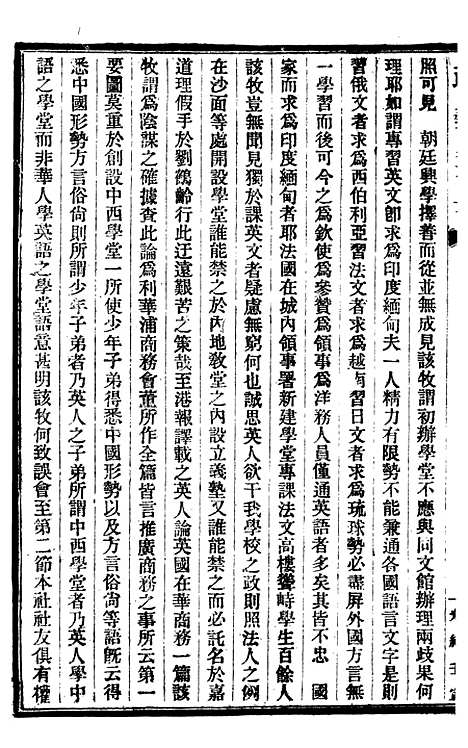 照可見　朝廷興學擇善而從並無成見該牧謂初辦學堂不應與同文館辦理兩歧果何
理耶如謂專習英文卽求爲印度緬甸夫一人精力有限勢不能兼通各國語言文字是則
習俄文者求爲西伯利亞習法文者求爲越南習日文者求爲琉球勢必盡屏外國方言無
一學習而後可今之爲欽使爲參贊爲領事爲洋務人員僅通英語者多矣其皆不忠　國
家而求爲印度緬甸者耶法國在城內領事署新建學堂專課法文高樓聳峙學生百餘人
該牧豈無聞見獨於課英文者疑慮無窮何也誠思英人欲干我學校之政則照法人之例
在沙面等處開設學堂誰能禁之於內地敎堂之內設立義塾又誰能禁之而必託名於嘉
道理假手於劉鶴齡行此迂遠艱苦之策哉至港報譯載之英人論英國在華商務一篇該
牧謂爲陰謀之確據查此論爲利華浦商務會董所作全篇皆言推廣商務之事所云第一
要圖莫重於創設中西學堂一所使少年子弟得悉中國形勢以及方言俗尙等語旣云得
悉中國形勢方言俗尙則所謂少年子弟者乃英人之子弟所謂中西學堂者乃英人學中
語之學堂而非華人學英語之學堂語意甚明該牧何致誤會至第二節本社社友俱有權